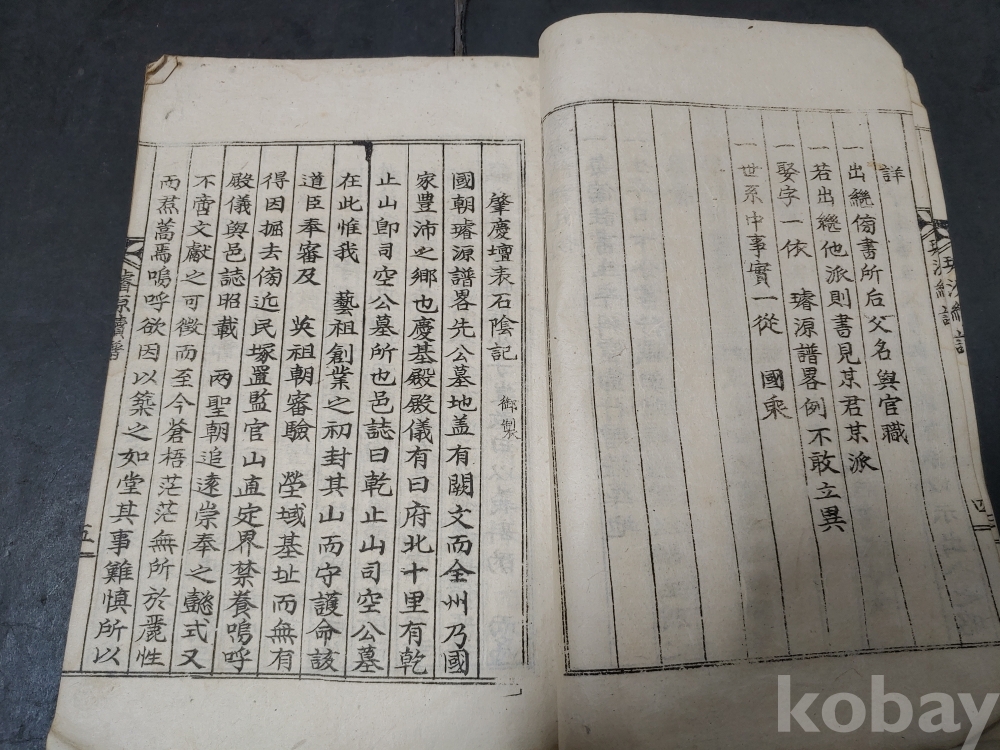 詳
一出継傍書所后父名與官職
一若出繼他派則書見某君某派
一娶字一依 璿源譜畧例不敢立異
一世系中事實一從 國乘
肇慶壇表石陰記 御製
國朝璿源譜畧先公墓地盖有闕文而全州乃國
家豊沛之鄉也慶基殿殿儀有曰府北十里有乾
止山卽司空公墓所也邑誌曰乾止山司空公墓
在此惟我 藝祖創業之初封其山而守護命該
道臣奉審及 英祖朝審驗 塋域基址而無有
得因掘去傍近民塚置監官山直定界禁養嗚呼
殿儀與邑誌昭載 两聖朝追遠崇奉之懿式又
不啻文獻之可徵而至今蒼梧茫茫無所於麗牲
而焄蒿焉嗚呼欲因以築之如堂其事難慎所以
璿源續譜
五
四
kobay